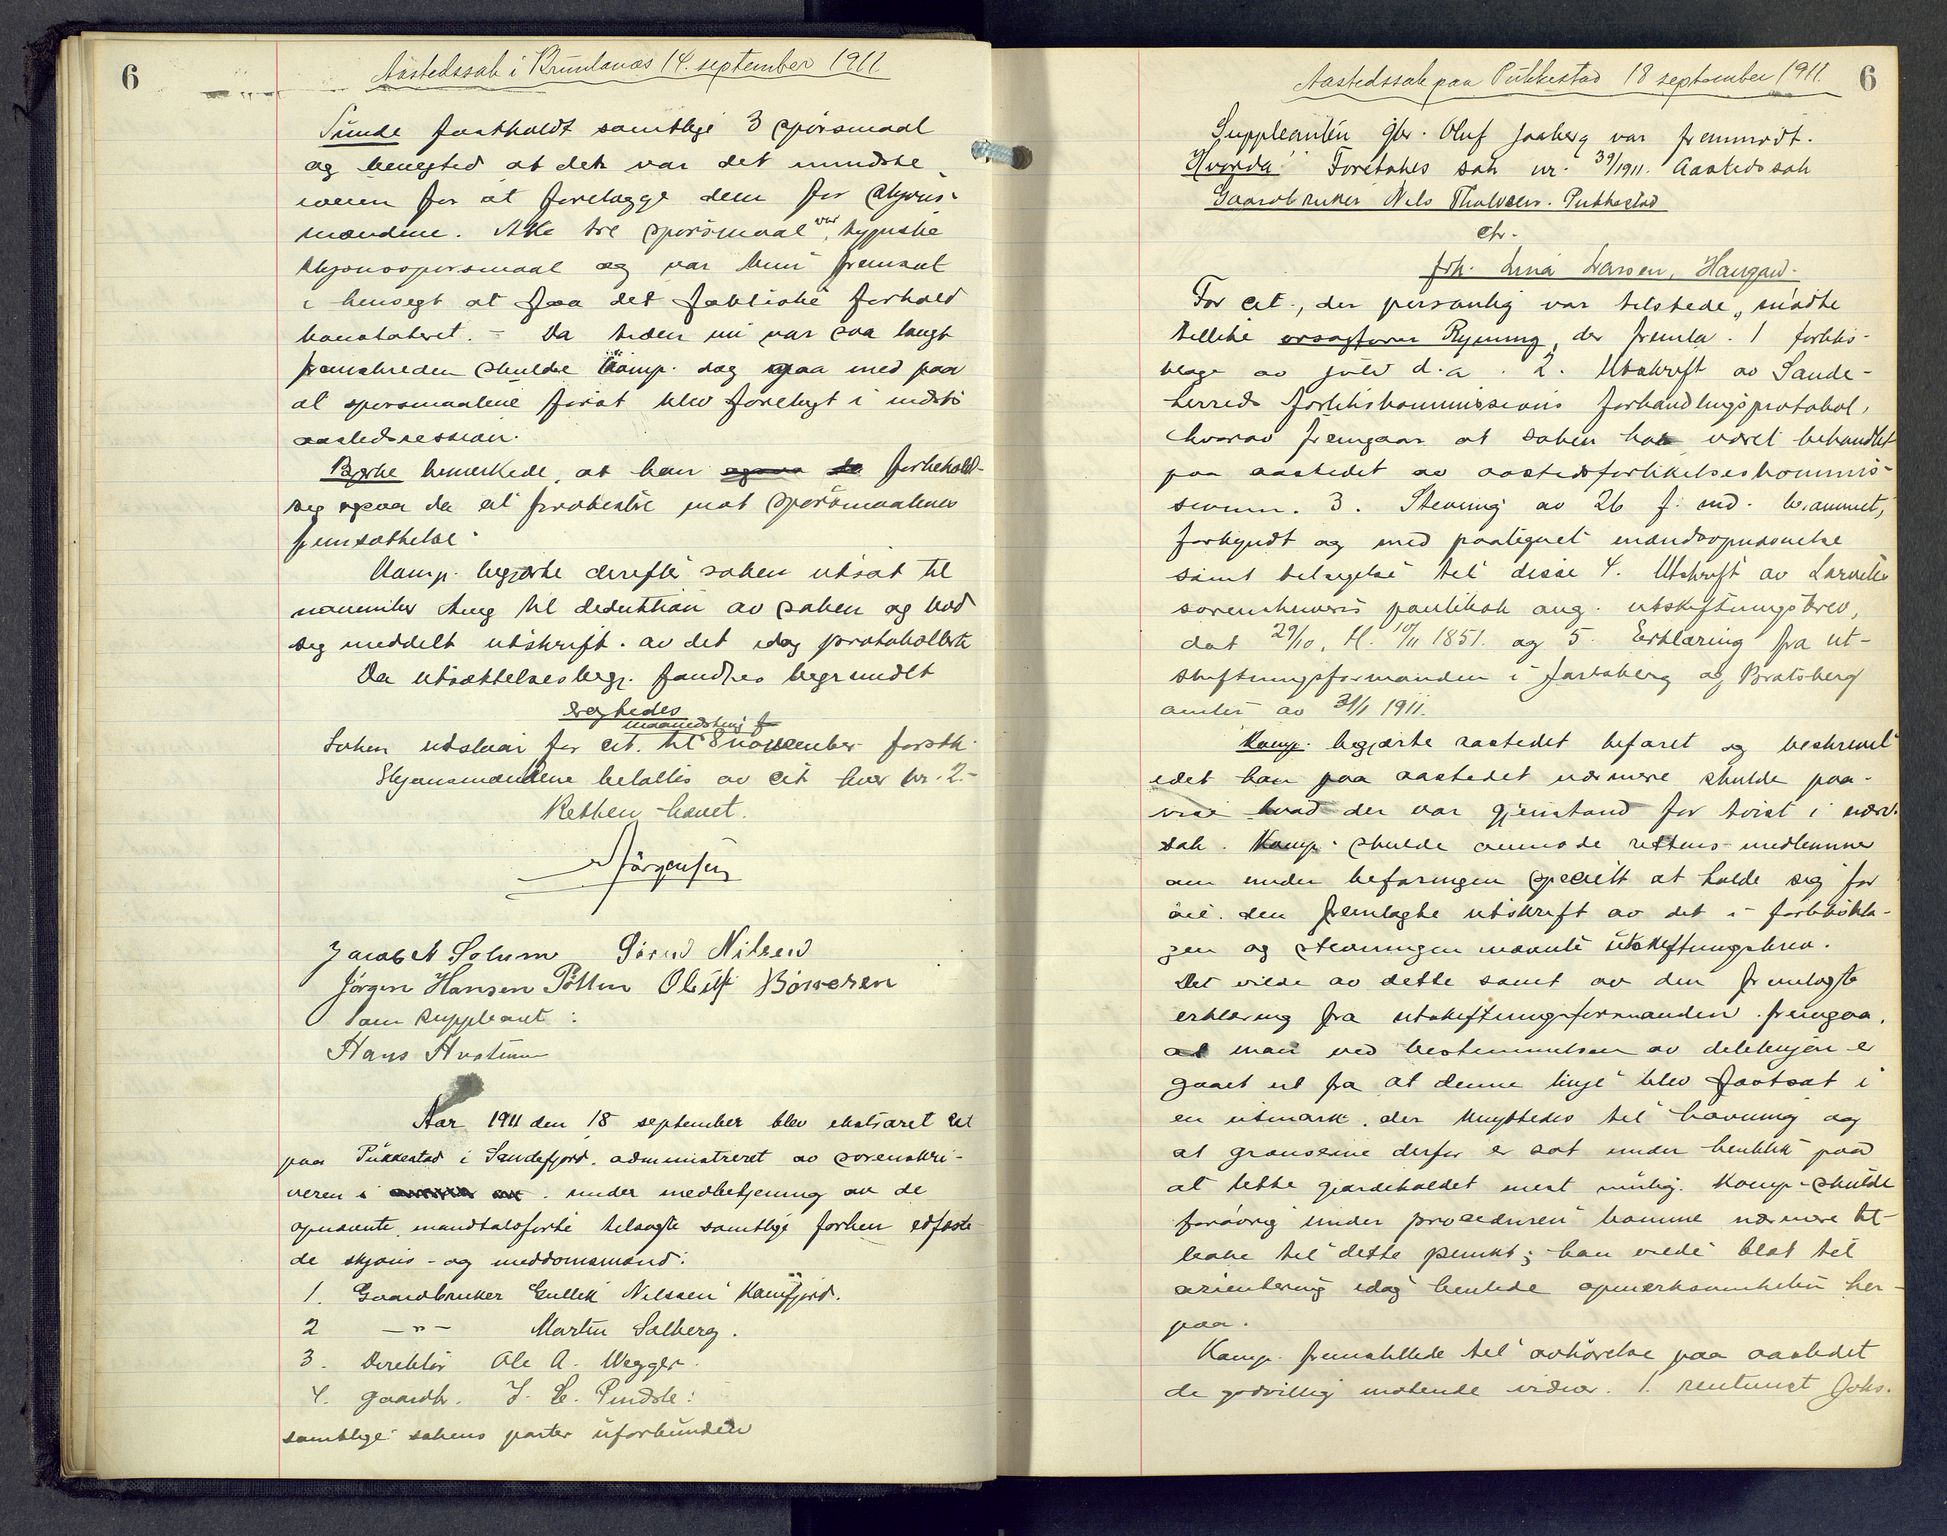 6
Aastedssak i Brunlanæs 14. september 1911.
Sunde fastholdt samtlige 3 spörsmaal
og benegted at det var det mindste
iveien for at forelægge dem for skjöns-
mændene. Alle tre spörsmaal var typiske
skjönsspörsmaal og var kun fremsat
i hensegt at faa det faktiske forhold
konstateret. – Da tiden nu var saa langt
fremskreden skulde komp. dog gaa med paa
at spörsmaalene först blev forelagt i næste
aastedssession.
Bjerke bemerkede, at han forbeholdt
sig ogsaa da at protestere mot spörsmaalenes
fremsættelse.
Komp. begjærte derefter saken utsat til
november ting til deduktion av saken og bad
sig meddelt utskrift av det idag protokollerte
Da utsættelsesbegj. fandtes begrundet
eragtedes
maanedsting
Saken utstaar for cit. til 8 november förstk.
Skjönsmændene betaltes av cit hver kr. 2.-
Retten hævet.
Jörgensen
Jacob A Solum Sörend Nilsen
Jörgen Hansen Pöllen Oluf Börresen
som suppleant:
Hans Hvatum
Aar 1911 den 18 september blev ekstraret sat
paa Pukkestad i Sandefjord, administreret av sorenskri-
veren i under medbetjening av de
opnævnte, mandtalsförte tilsagte samtlige forhen edfæste-
de skjöns- og meddomsmænd:
1. Gaardbruker Gullik Nilssen Kamfjord.
2 —"— Martin Solberg.
3. Direktör Ole A. Wegger.
4. gaardbr. I. C. Pindsle:
samtlige sakens parter uforbunden
Aastedssak paa Pukkestad 18 september 1911.
6
Suppleanten gbr. Oluf Jaaberg var fremmödt.
Hvorda Foretakes sak nr. 39/1911. Aastedssak
Gaardbruker Nils Thalvsen. Pukkestad
ctr.
frk. Lina Larsen, Haugan.
For cit., der personlig var tilstede, mödte
tillike orsagförer Rynning, der fremla. 1 forliks-
klage av juli d.a. 2. Utskrift av Sande-
herreds forlikskommissions forhandlingsprotokol,
hvorav fremgaar at saken har været behandlet
paa aastedet av aastedsforlikelseskommis-
sionen. 3. Stevning av 26 f. md. berammet,
forkyndt og med paategnet mændsopnævnelse
samt tilsigelse til disse 4. Utskrift av Larviks
sorenskriveris pantebok ang. utskiftningsbrev,
dat 29/10, tl. 10/11 1851. og 5. Erklæring fra ut-
skiftningsformanden i Jarlsberg og Bratsberg
amter av 31/1 1911.
Komp. begjærte aastedet befaret og beskrevet
idet han paa aastedet nærmere skulde paa-
vise hvad der var gjenstand for tvist i nærv.
sak. Komp. skulde anmode rettens medlemmer
om under befaringen specielt at holde sig for
öie den fremlagte utskrift av det i forlikskla-
gen og stevningen nævnte utskiftningsbrev.
Det vilde av dette samt av den fremlagte
erklæring fra utskiftningsformanden fremgaa,
at man ved bestemmelsen av delelinjen er
gaaet ut fra at denne linje blev fastsat i
en utmark, der benyttedes til havning og
at grænserne derfor er sat under henblik paa
at lette gjærdeholdet mest mulig. Komp. skulde
forövrig under proceduren komme nærmere til-
bake til dette punkt; han vilde blot til
orientering idag henlede opmerksomheten her-
paa.
Komp. fremstillede til avhörelse paa aastedet
de godvillig mötende vidner. 1. rentenist Johs.